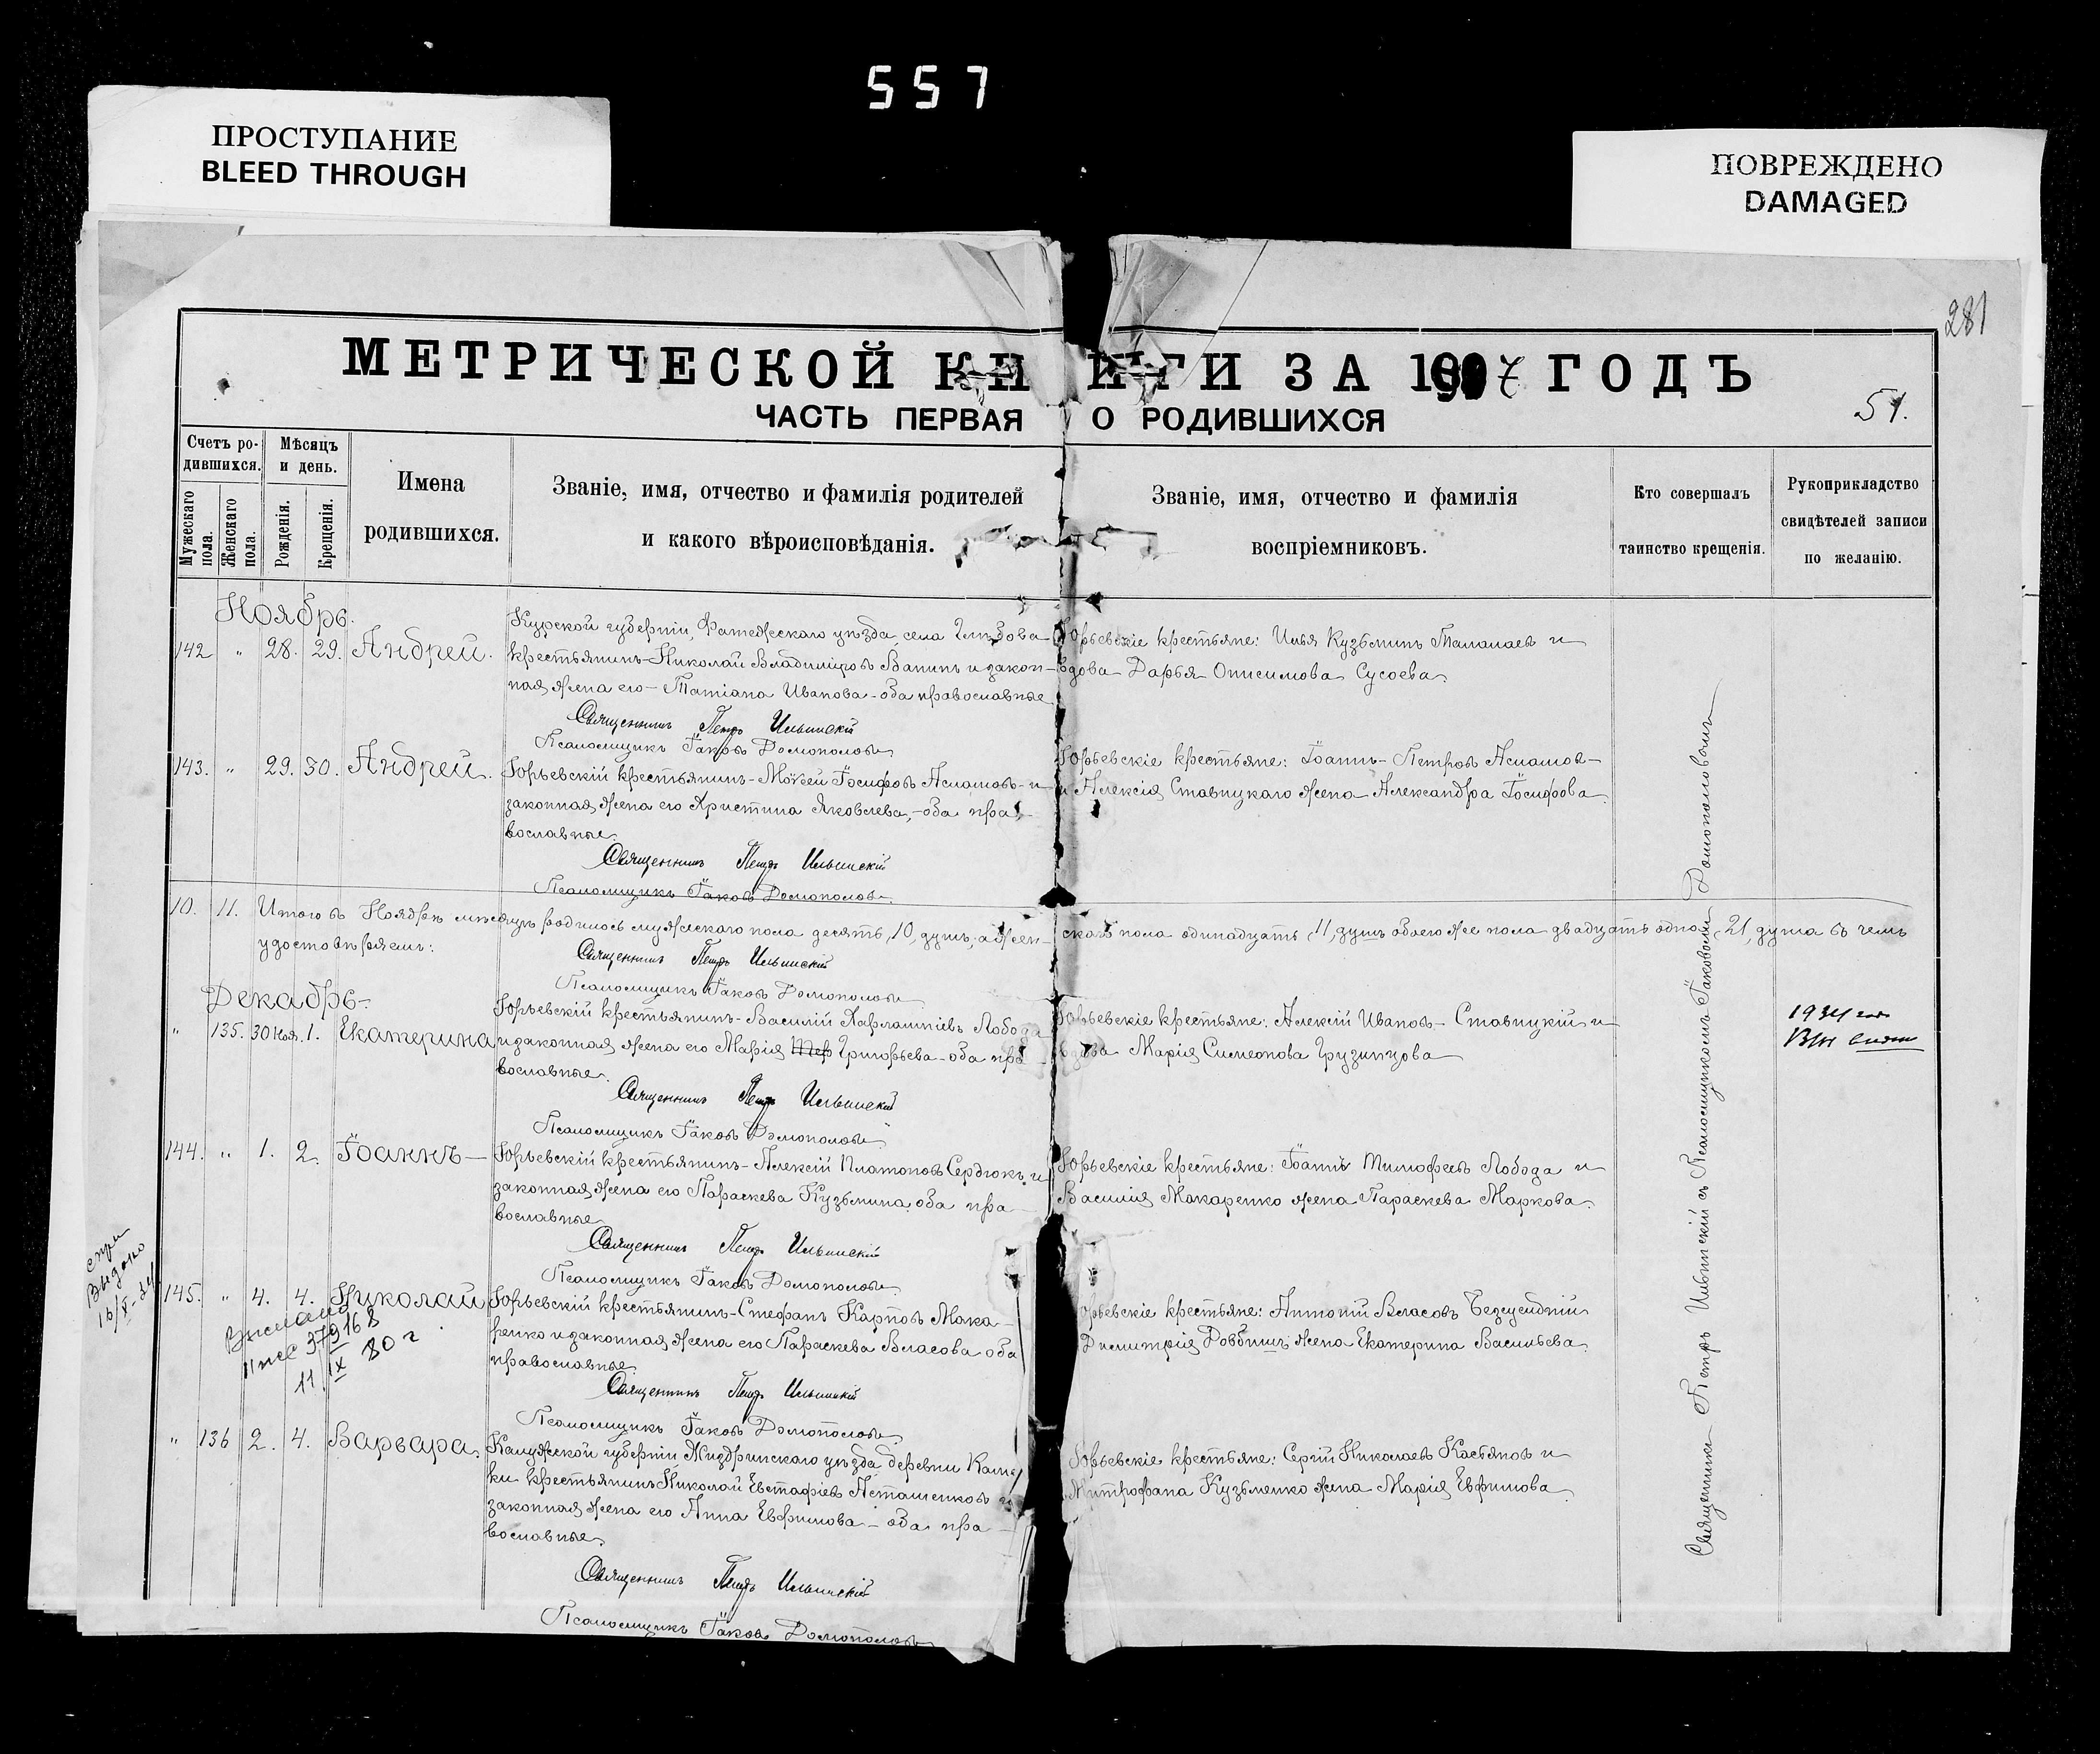 557
ПРОСТУПАНИЕ
BLEED THROUGH
ПОВРЕЖДЕНО
DAMAGED
281
МЕТРИЧЕСКОЙ КНИГИ ЗА 1907 ГОДЪ
ЧАСТЬ ПЕРВАЯ О РОДИВШИХСЯ
51.
Счетъ ро-
дившихся.
Мужескаго пола.
Женскаго пола.
Мѣсяцъ
и день.
Рожденія.
Крещенія.
Имена
родившихся.
Званіе, имя, отчество и фамилія родителей
и какого вѣроисповѣданія.
Званіе, имя, отчество и фамилія
воспріемниковъ.
Кто совершалъ
таинство крещенія.
Рукоприкладство
свидѣтелей записи
по желанію.
Ноябрь.
142 " 28. 29. Андрей.
Курской губерніи, Фатежскаго уѣзда села
крестьянинъ Николай Владиміровъ Ванинъ и закон-
ная жена его Татіана Иванова - оба православные
Юрьевскіе крестьяне: Илья Кузьминъ и
вдова Дарья Онисимова Сусоева
Священникъ Петръ Ильинскій
Псаломщикъ Іаковъ Домополовъ
143. " 29. 30. Андрей.
Юрьевскій крестьянинъ - Мокей Іосифовъ Асламовъ - и
законная жена его Христина Яковлева, - оба пра-
вославные.
Юрьевскіе крестьяне: Іоаннъ Петровъ Асламов
и Алексія Ставицкаго жена Александра Іосифова.
Священникъ Петръ Ильинскій
Псаломщикъ Іаковъ Домополовъ
10. 11. Итого въ Ноябрѣ мѣсяцѣ родилось мужескаго пола десять, 10, душъ, а жен-скаго пола одинадцать, 11, душъ обоего же пола двадцать одна, 21, душа въ чемъ
удостовѣряемъ:
Священникъ Петръ Ильинскій
Псаломщикъ Іаковъ Домополовъ
Декабрь
" 135. 30 Ноя. 1. Екатерина
Юрьевскій крестьянинъ - Василій Харлампіевъ Лобода
и законная жена его Марія Григорьева - оба пра-
вославные.
Юрьевскіе крестьяне: Алексій Ивановъ Ставицкій и
вдова Марія Симеонова Грузинцова
1934
Священникъ Петръ Ильинскій
Псаломщикъ Іаковъ Домополовъ
144. " 1. 2. Іоаннъ
Юрьевскій крестьянинъ - Алексій Платоновъ Сердюкъ и
законная жена его Параскева Кузьмина оба пра
вославные
Юрьевскіе крестьяне: Іоаннъ Тимофеевъ Лобода и
Василія Макаренко жена Параскева Маркова.
Священникъ Петръ Ильинскій
Псаломщикъ Іаковъ Домополовъ
Выдано
145. " 4. 4. Николай
Юрьевскій крестьянинъ - Стефанъ Карповъ Мака-
ренко и законная жена его Параскева Власова оба
православные
Юрьевскіе крестьяне: Антоній Власовъ
Димитрія жена Екатерина Васильева.
379168
11/IX 80 г
Священникъ Петръ Ильинскій
Псаломщикъ Іаковъ Домополовъ
" 136 2. 4. Варвара.
Калужской губерніи Жиздринскаго уѣзда деревни
крестьянинъ Николай Евстафіевъ Асташенковъ и
законная жена его Анна Евфимова - оба пра
вославные
Юрьевскіе крестьяне: Сергій Николаевъ Касьяновъ и
Митрофана Кузьменко жена Марія Евфимова
Священникъ Петръ Ильинскій
Псаломщикъ Іаковъ Домополовъ
Священникъ Петръ Ильинскій съ Псаломщикомъ Іаковомъ Домополовымъ